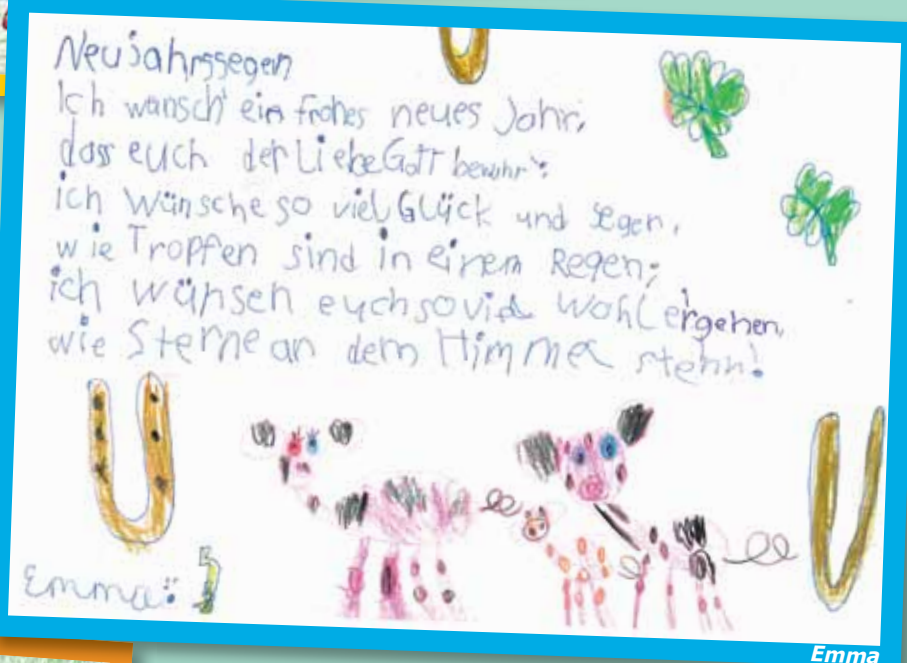 Neujahrssegen
Ich wünsch' ein frohes neues Jahr,
dass euch der Liebe Gott bewahr':
ich wünsche so viel Glück und Segen,
wie Tropfen sind in einem Regen;
ich wünsen euch soviel wohlergehen,
wie Sterne an dem Himmel stehn!
Emma
Emma